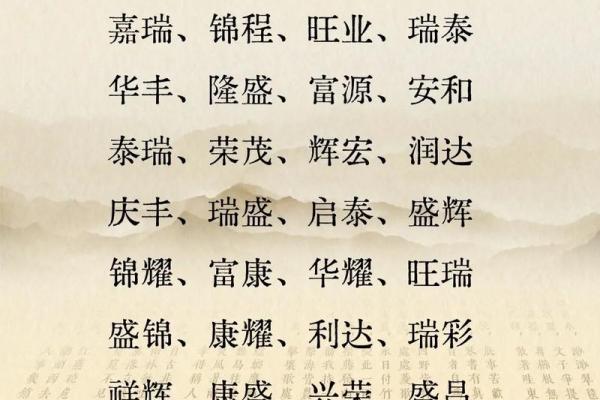 嘉瑞、锦程、旺业、瑞泰
华丰、隆盛、富源、安和
泰瑞、荣茂、辉宏、润达
庆丰、瑞盛、启泰、盛辉
锦耀、富康、华耀、旺瑞
盛锦、康耀、利达、瑞彩
祥辉、康盛、兴荣、盛昌